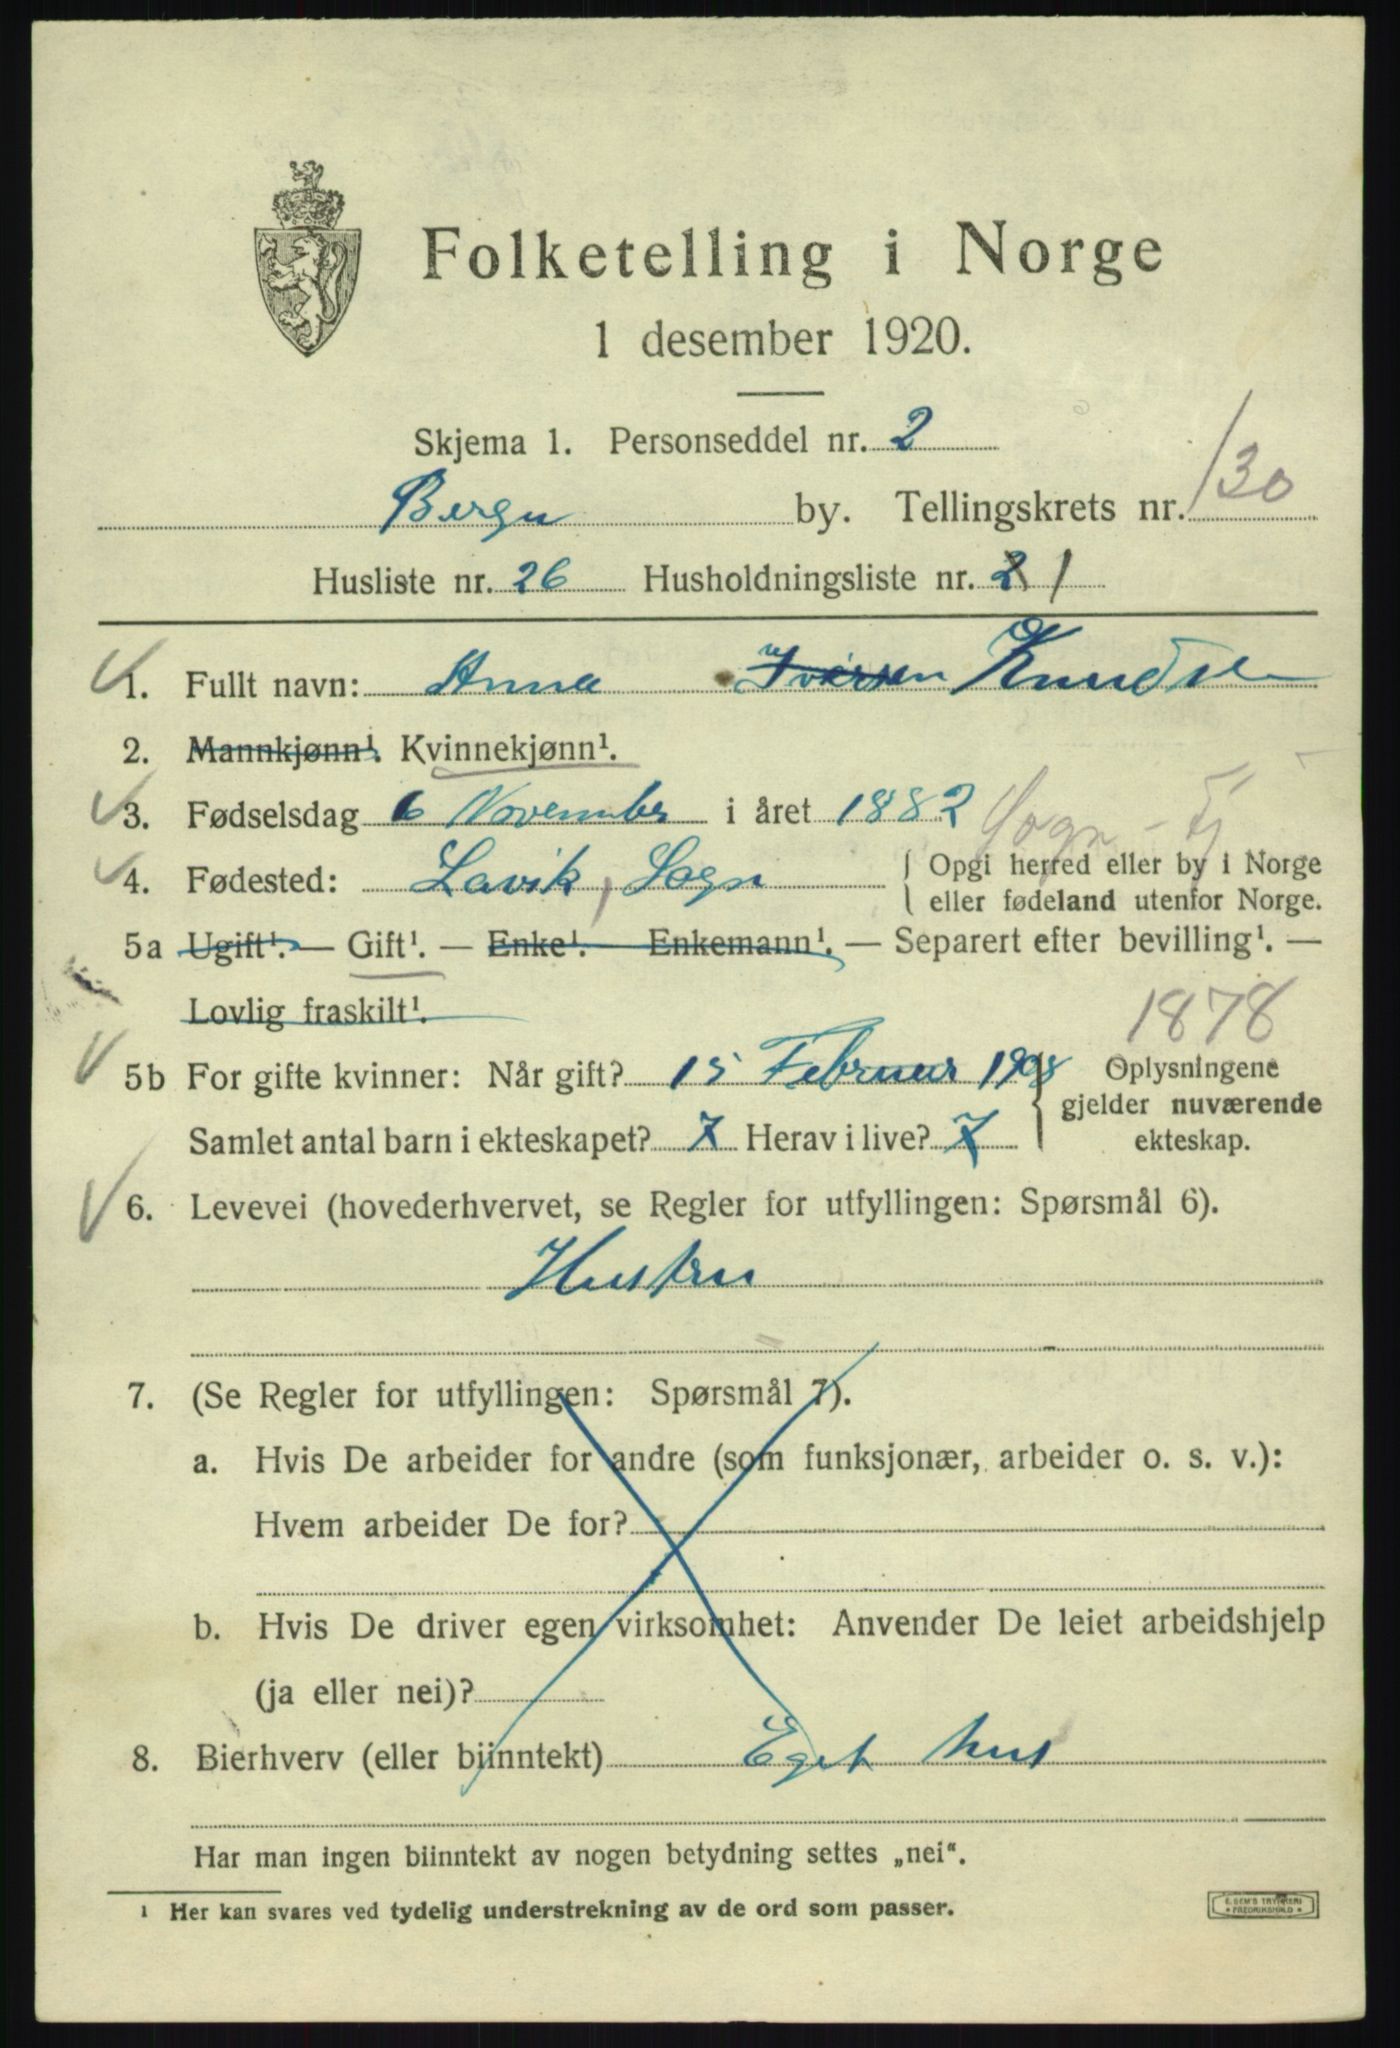 Folketelling i Norge
1 desember 1920.
Skjema 1. Personseddel nr. 2
Bergen by. Tellingskrets nr. 130
Husliste nr. 26 Husholdningsliste nr. 2 1
1. Fullt navn: Anna Iversen Knudsen
2. Mannkjønn¹. Kvinnekjønn¹.
3. Fødselsdag 6 November i året 1882 Sogn - Fj
4. Fødested: Lavik, Sogn { Opgi herred eller by i Norge
eller fødeland utenfor Norge.
5a Ugift¹. — Gift¹. — Enke¹. — Enkemann¹. — Separert efter bevilling¹. —
Lovlig fraskilt¹.
1878
5b For gifte kvinner: Når gift? 15 Februar 1908 Oplysningene
gjelder nuværende
Samlet antal barn i ekteskapet? 7 Herav i live? 7 ekteskap.
6. Levevei (hovederhvervet, se Regler for utfyllingen: Spørsmål 6).
Hustru
7. (Se Regler for utfyllingen: Spørsmål 7).
a. Hvis De arbeider for andre (som funksjonær, arbeider o. s. v.):
Hvem arbeider De for?
b. Hvis De driver egen virksomhet: Anvender De leiet arbeidshjelp
(ja eller nei)?
8. Bierhverv (eller biinntekt) Eget hus
Har man ingen biinntekt av nogen betydning settes „nei“.
¹ Her kan svares ved tydelig understrekning av de ord som passer.
E. SEM'S TRYKKERI
FREDRIKSHALD